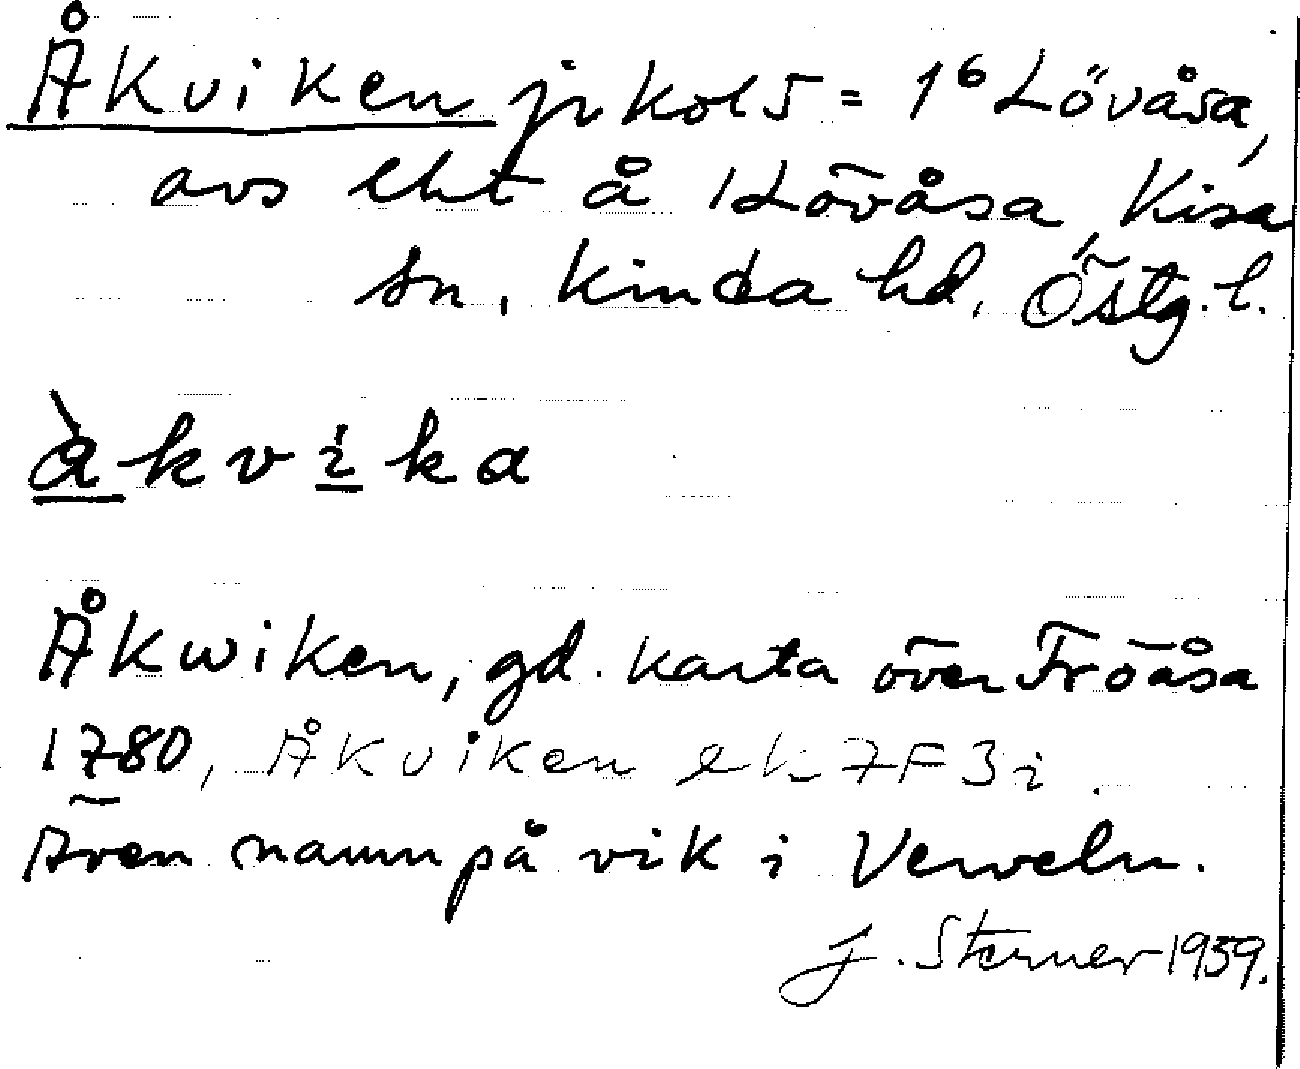 Åkviken jr kols = 1⁶ Lövåsa,
avs lht å 1 Lövåsa, Kisa
sn, Kinda hd, Östg. l.
àkvika
Åkwiken, gd. karta över Fröåsa
1780, Åkviken ek 7F3i.
Även namn på vik i Verveln.
J. Sterner 1959.